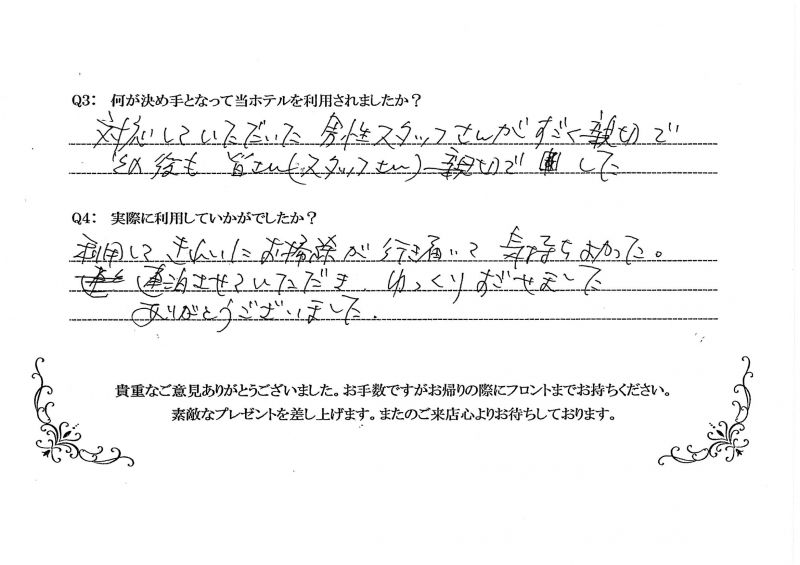 Q3: 何が決め手となって当ホテルを利用されましたか？
対応していただいた 男性スタッフさんがすごく親切で
その後も 皆さん(スタッフさん) 親切で した
Q4: 実際に利用していかがでしたか？
利用して きれいにお掃除が 行き届いて 気持ちよかった。
連泊させていただき、ゆっくりすごせました
ありがとうございました.
貴重なご意見ありがとうございました。お手数ですがお帰りの際にフロントまでお持ちください。
素敵なプレゼントを差し上げます。またのご来店心よりお待ちしております。